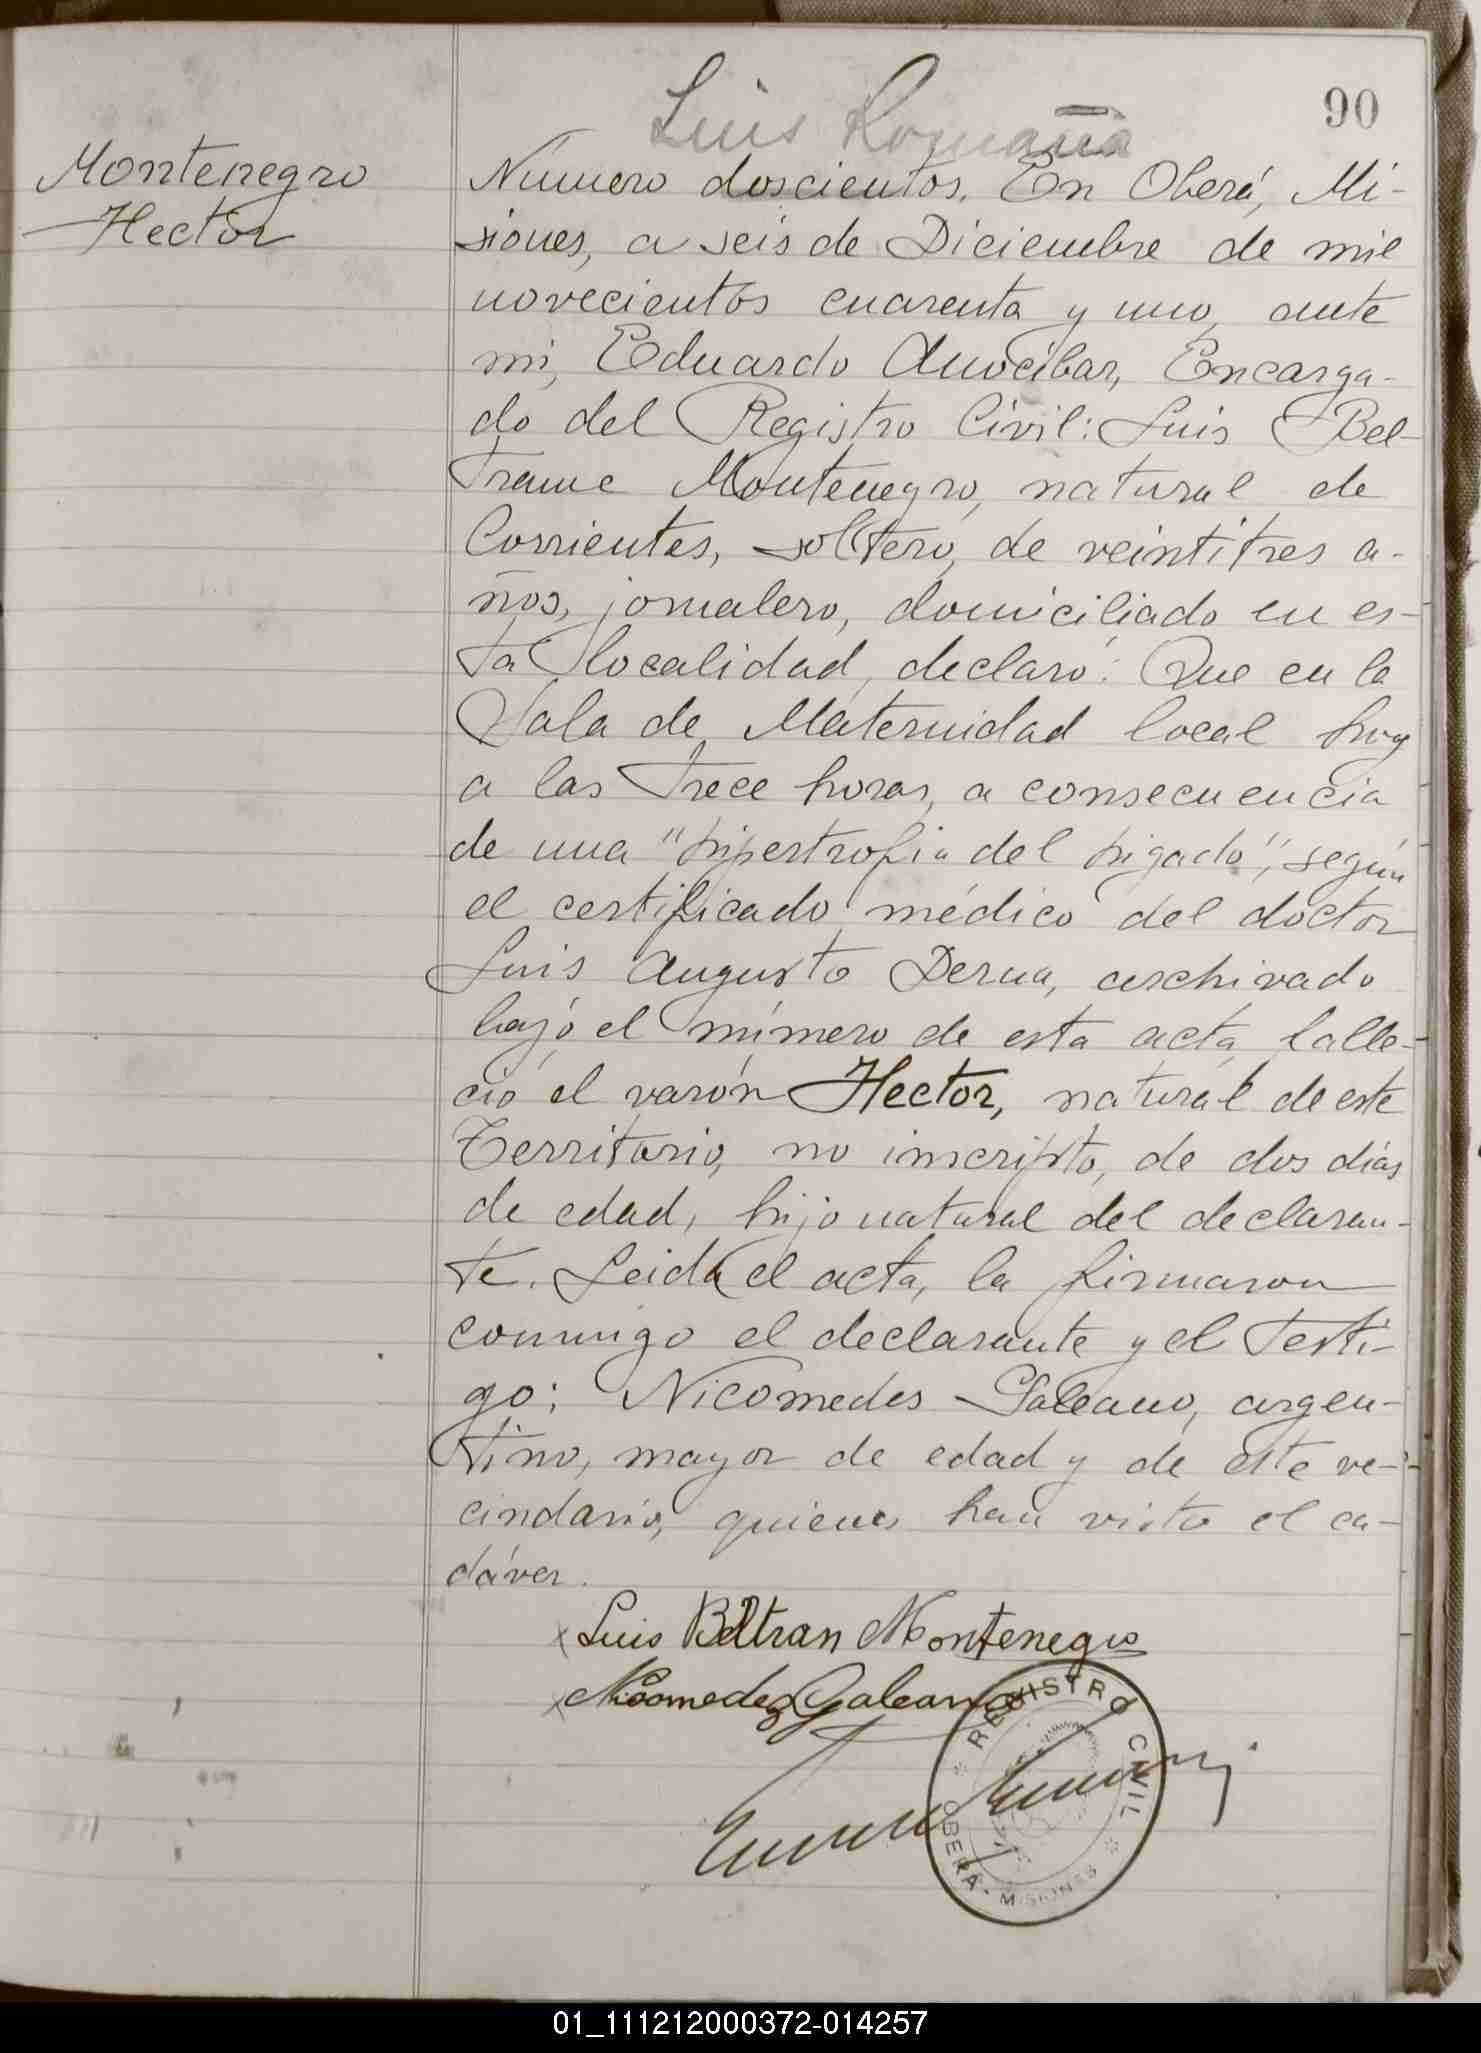 Luis Romaña
90
Montenegro
Hector
Número doscientos. En Oberá, Mi-
siones, a seis de Diciembre de mil
novecientos cuarenta y uno, ante
mi, Eduardo Anocibar, Encarga-
do del Registro Civil: Luis Bel-
trame Montenegro, natural de
Corrientes, soltero, de veintitres a-
ños, jornalero, domiciliado en es-
ta localidad, declaró: Que en la
Sala de Maternidad local hoy
a las trece horas, a consecuencia
de una "hipertrofia del higado", según
el certificado médico del doctor
Luis Augusto Derna, archivado
bajo el número de esta acta, falle-
ció el varón Hector, natural de este
Territorio, no inscripto, de dos días
de edad, hijo natural del declaran-
te. Leida el acta, la firmaron
conmigo el declarante y el testi-
go: Nicomedes Galeano, argen-
tino, mayor de edad y de este ve-
cindario, quienes han visto el ca-
dáver.
x Luis Beltran Montenegro
x Nicomedez Galeano
REGISTRO CIVIL
OBERA - MISIONES
01_111212000372-014257